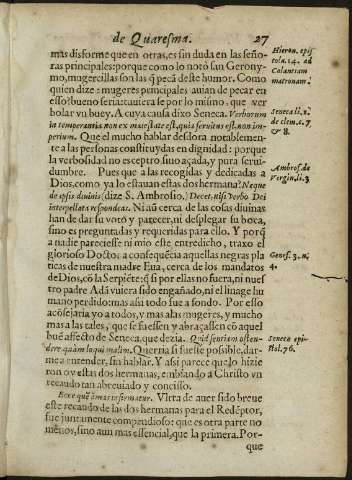 de Quaresma. 27
mas disforme que en otras, es sin duda en las seño-
ras principales: porque como lo notó san Gerony-
mo, mugercillas son las q̃ pecã deste humor. Como
quien dize: mugeres principales auian de pecar en
esso? bueno seria: tauiera se por lo mismo, que ver
bolar vn buey. A cuya causa dixo Seneca. Verborum
in temperantia non ex maiestate est, quia seruitus est, non im-
perium. Que el mucho hablar desdora notablemen-
te a las personas constituydas en dignidad: porque
la verbosidad no es ceptro sino açada, y pura serui-
dumbre. Pues que a las recogidas y dedicadas a
Dios, como ya lo estauan estas dos hermana? Neque
de ipsis diuinis (dize S. Ambrosio,) Decet, nisi Verbo Dei
interpellata respondeas. Ni aũ cerca de las cosas diuinas
han de dar su votó y parecer, ni desplegar su boca,
sino es preguntadas y requeridas para ello. Y porq̃
a nadie pareciesse ni mio este entredicho, traxo el
glorioso Doctor a consequẽcia aquellas negras pla
ticas de nuestra madre Eua, cerca de los mandatos
de Dios, cõ la Serpiẽte: q̃ si por ellas no fuera, ni nuef
tro padre Adã vuiera sido engañado, ni el linage hu
mano perdido: mas asi todo fue a fondo. Por esso
acõsejaria yo a todos, y mas a las mugeres, y mucho
mas a las tales, que se fuessen y abraçassen cõ aquel
buẽ affecto de Seneca, que dezia. Quid sentiam osten-
dere, quàm loqui malim. Querria si fuesse posible, dar-
me a entender, sin hablar. Y asi parece que lo hizie
ron oy estas dos hermanas, embiãdo a Christo vn
recaudo tan abreuiado y conciso.
Ecce quẽ amas infirmatur. Vltra de auer sido breue
este recaudo de las dos hermanas para el Redẽptor,
fue juntamente compendioso: que es otra parte no
menos, sino aun mas essencial, que la primera. Por-
que
Hieron. epis
tola. 14. ad
Celantiam
matronam.
Seneca li. 1.
de clem. c. 7
& 8.
Ambros. de
Vergin. li. 3
Genes. 3. n.
4.
Seneca epi-
stol. 76.